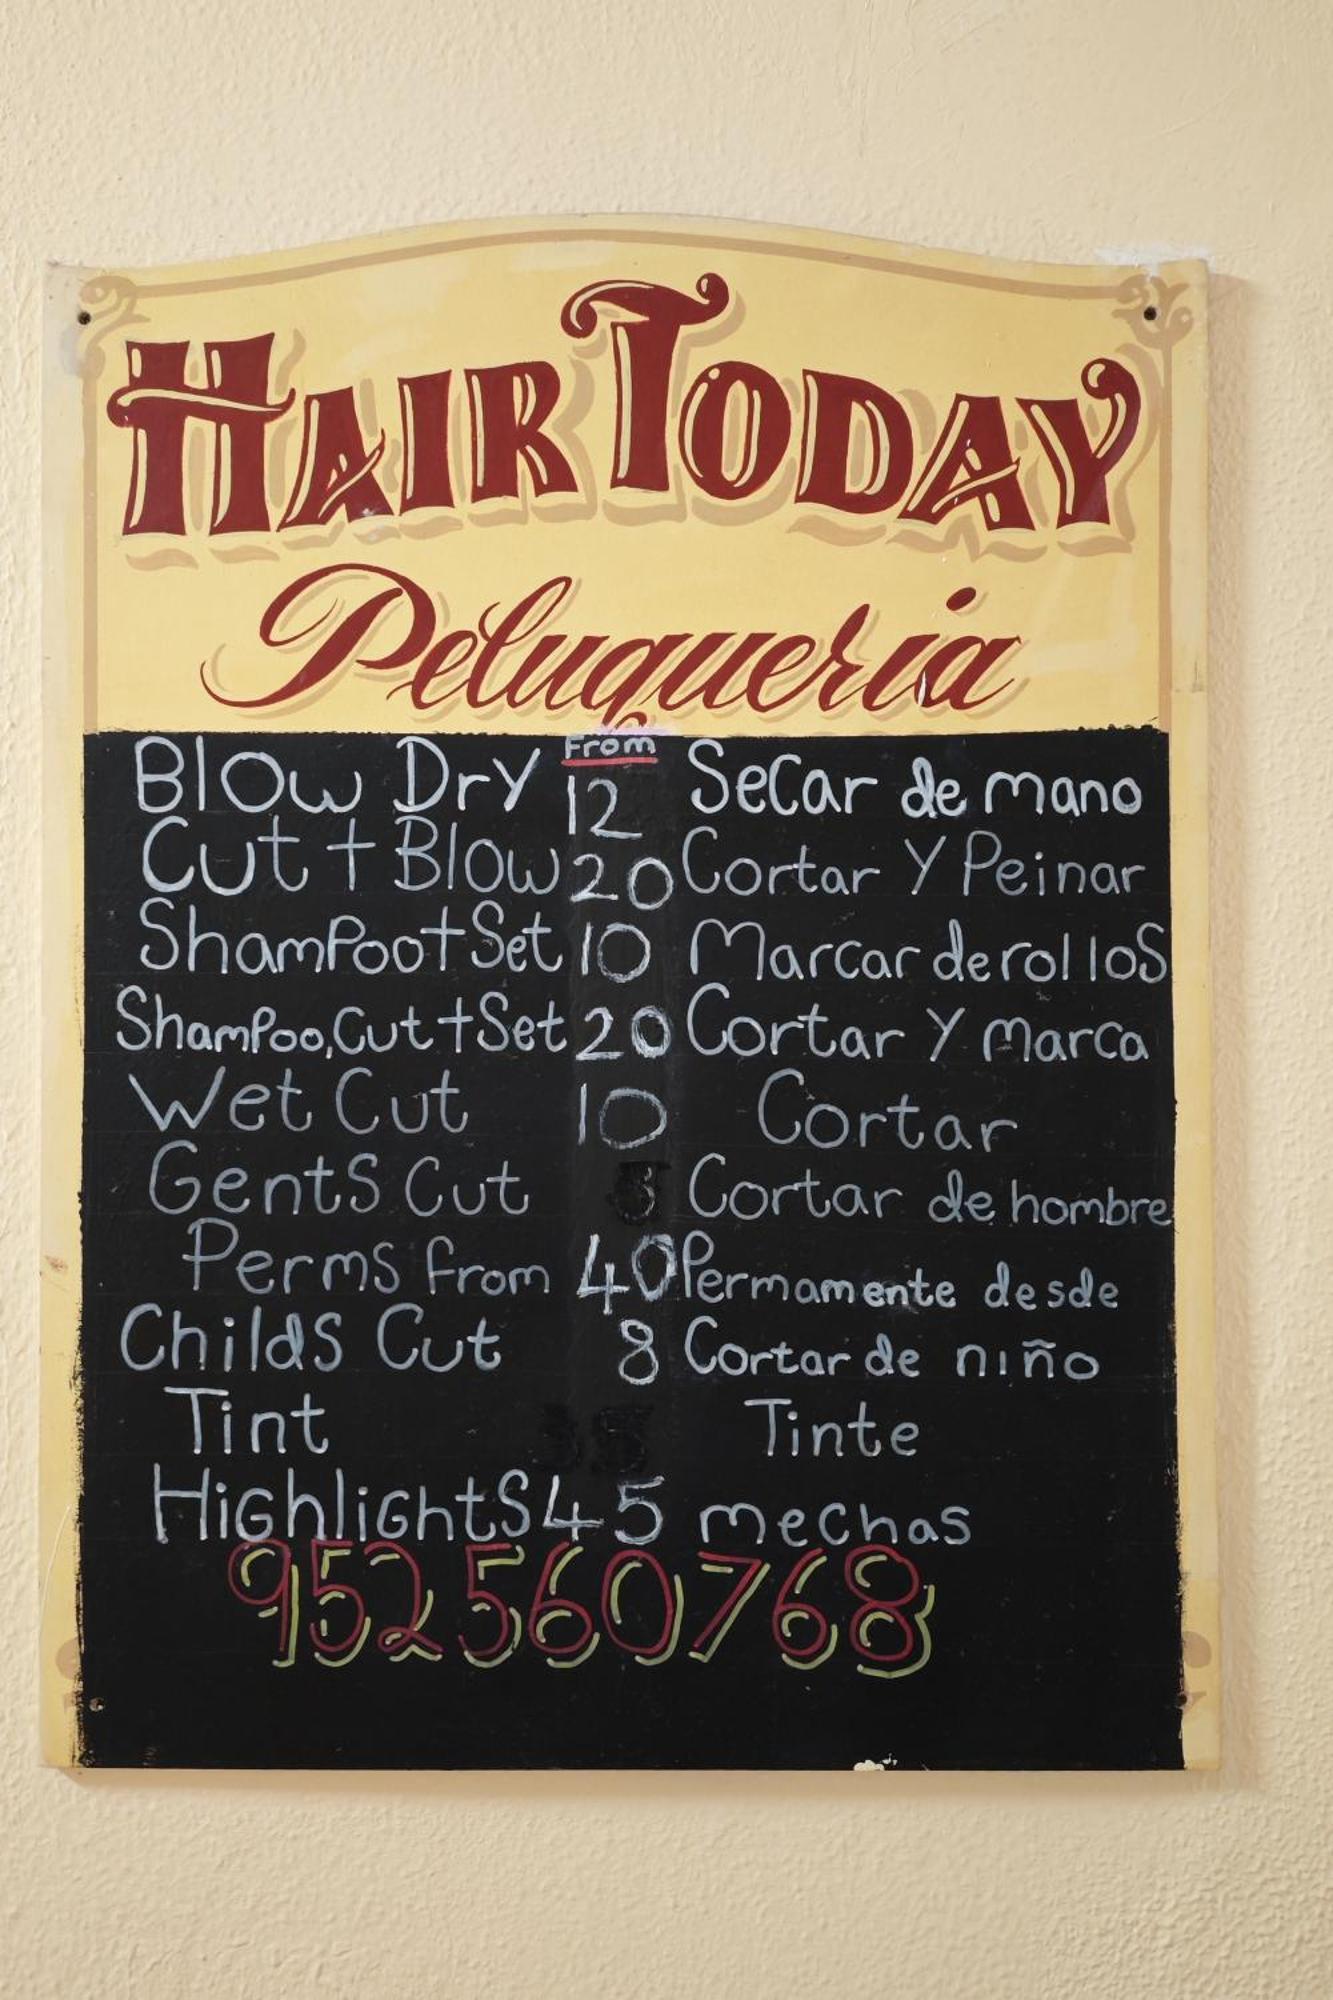 HAIR TODAY
Peluqueria
From
Blow Dry 12 Secar de mano
Cut + Blow 20 Cortar Y Peinar
Shampoo + Set 10 Marcar de rollos
Shampoo, Cut + Set 20 Cortar Y marca
Wet Cut 10 Cortar
Gents Cut Cortar de hombre
Perms from 40 Permamente desde
Childs Cut 8 Cortar de niño
Tint Tinte
Highlights 45 mechas
952560768